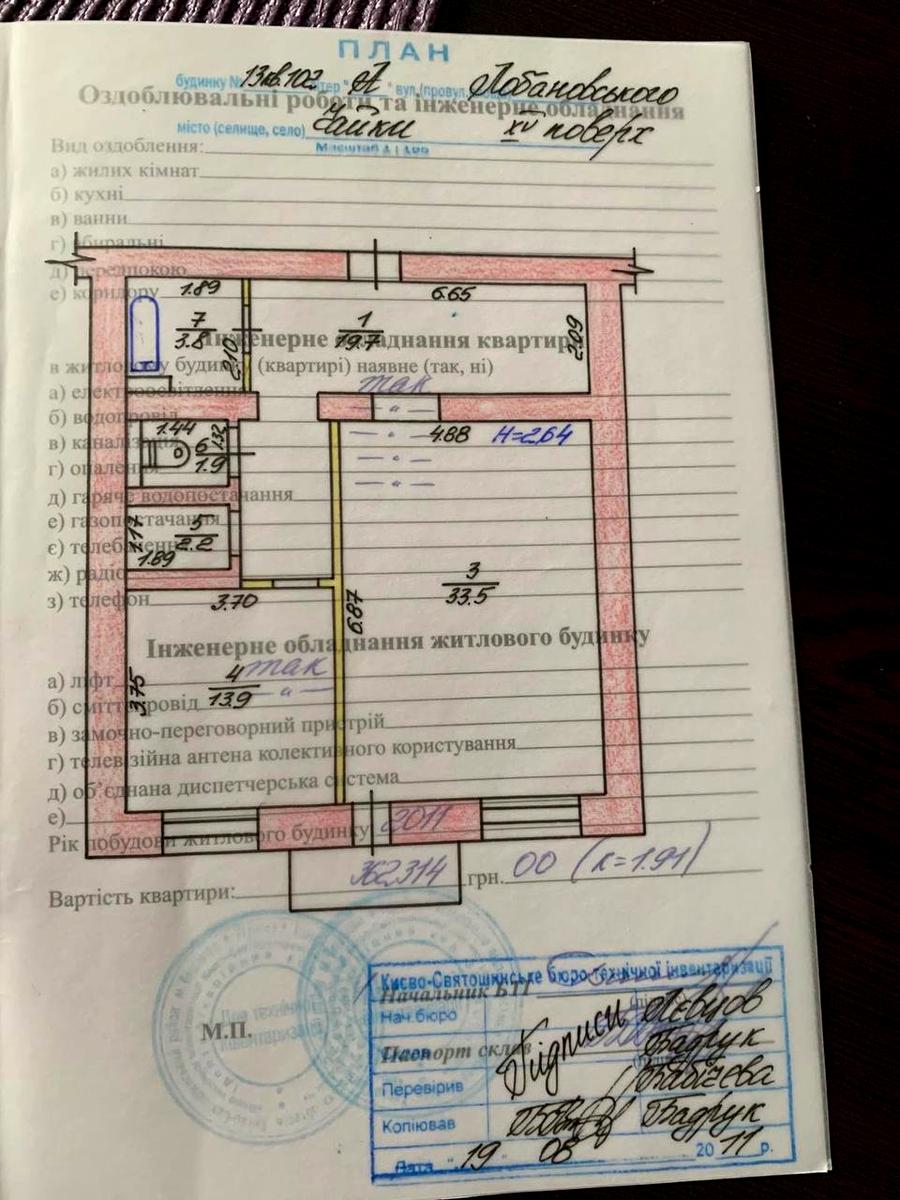 ПЛАН
будинку № 13 кв.102 літер "А" вул.(провул. Лобановського
Оздоблювальні роботи та інженерне обладнання
місто (селище, село) Чайки XV поверх
Масштаб 1:100
Вид оздоблення:
а) жилих кімнат
б) кухні
в) ванни
г) вбиральні
д) передпокою
е) коридору
1.89
6.65
7
3.8
2.10
1
19.7
2.09
Інженерне обладнання квартири
в житловому будинку (квартирі) наявне (так, ні)
а) електроосвітлення так
б) водопровід — " —
в) каналізація — " —
г) опалення — " —
д) гаряче водопостачання — " —
е) газопостачання
є) телебачення
ж) радіо
з) телефон
1.44
6
1.9
1.32
4.88
H=2,64
1.17
5
2.2
1.89
3
33.5
3.70
6.87
Інженерне обладнання житлового будинку
а) ліфт так
б) сміттєпровід — " —
в) замочно-переговорний пристрій
г) телевізійна антена колективного користування
д) об'єднана диспетчерська система
е)
4
13.9
3.75
Рік побудови житлового будинку 2011
Вартість квартири: 362314 грн. 00 (к=1.91)
Києво-Святошинське бюро технічної інвентаризації
Начальник БТІ
Нач.бюро Підписи Лєвцов
Паспорт склав Бадрук
Перевірив Бабічева
Копіював Бадрук
Дата "19" 08 2011 р.
М.П.